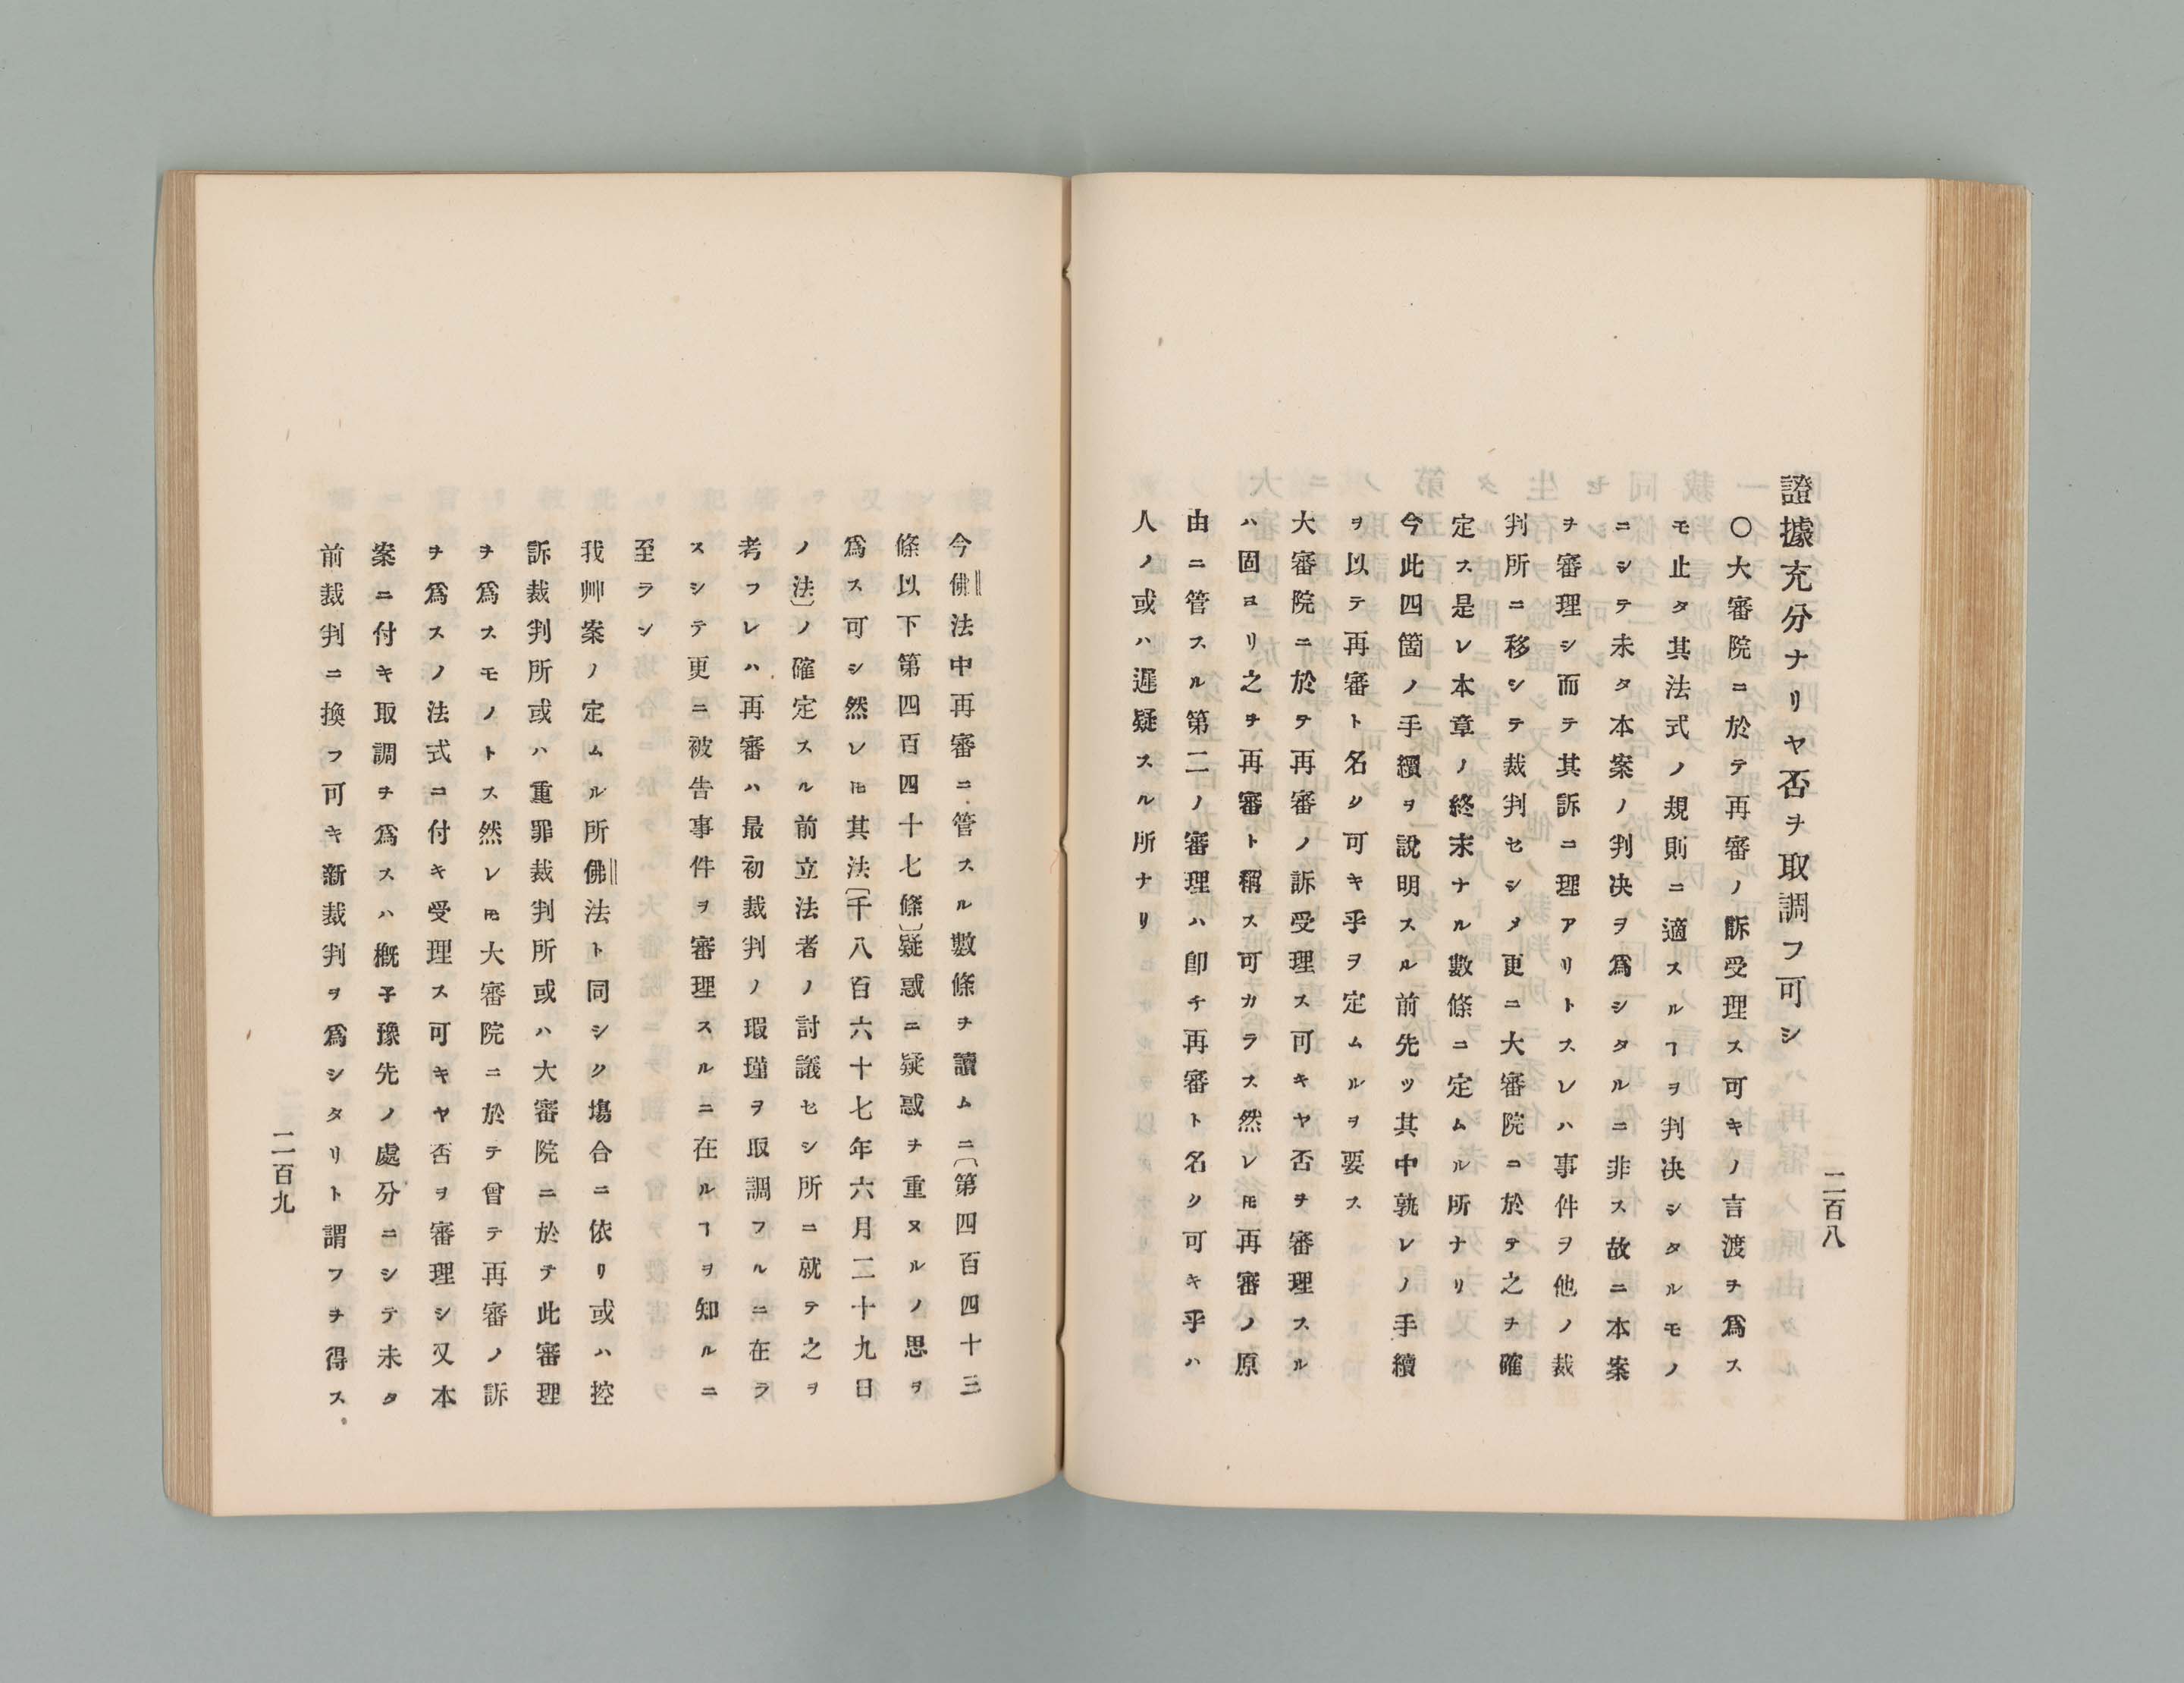 二百八
證據充分ナリヤ否ヲ取調フ可シ
〇大審院ニ於テ再審ノ訴受理ス可キノ言渡ヲ爲ス
モ止タ其法式ノ規則ニ適スルヿヲ判決シタルモノ
ニシテ未タ本案ノ判決ヲ爲シタルニ非ス故ニ本案
ヲ審理シ而テ其訴ニ理アリトスレハ事件ヲ他ノ裁
判所ニ移シテ裁判セシメ更ニ大審院ニ於テ之ヲ確
定ス是レ本章ノ終末ナル數條ニ定ムル所ナリ
今此四箇ノ手續ヲ說明スル前先ツ其中孰レノ手續
ヲ以テ再審ト名ク可キ乎ヲ定ムルヲ要ス
大審院ニ於テ再審ノ訴受理ス可キヤ否ヲ審理スル
ハ固ヨリ之ヲ再審ト稱ス可カラス然レ𪜈再審ノ原
由ニ管スル第二ノ審理ハ卽チ再審ト名ク可キ乎ハ
人ノ或ハ遲疑スル所ナリ
今佛法中再審ニ管スル數條ヲ讀ムニ〔第四百四十三
條以下第四百四十七條〕疑惑ニ疑惑ヲ重ヌルノ思ヲ
爲ス可シ然レ𪜈其法〔千八百六十七年六月二十九日
ノ法〕ノ確定スル前立法者ノ討議セシ所ニ就テ之ヲ
考フレハ再審ハ最初裁判ノ瑕瑾ヲ取調フルニ在ラ
スシテ更ニ被告事件ヲ審理スルニ在ルヿヲ知ルニ
至ラン
我艸案ノ定ムル所佛法ト同シク塲合ニ依リ或ハ控
訴裁判所或ハ重罪裁判所或ハ大審院ニ於テ此審理
ヲ爲スモノトス然レ𪜈大審院ニ於テ曾テ再審ノ訴
ヲ爲スノ法式ニ付キ受理ス可キヤ否ヲ審理シ又本
案ニ付キ取調ヲ爲スハ槪子豫先ノ處分ニシテ未タ
前裁判ニ換フ可キ新裁判ヲ爲シタリト謂フヲ得ス
二百九